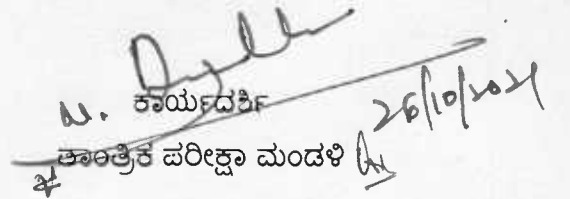 ಕಾರ್ಯದರ್ಶಿ
26/10/2021
ತಾಂತ್ರಿಕ ಪರೀಕ್ಷಾ ಮಂಡಳಿ